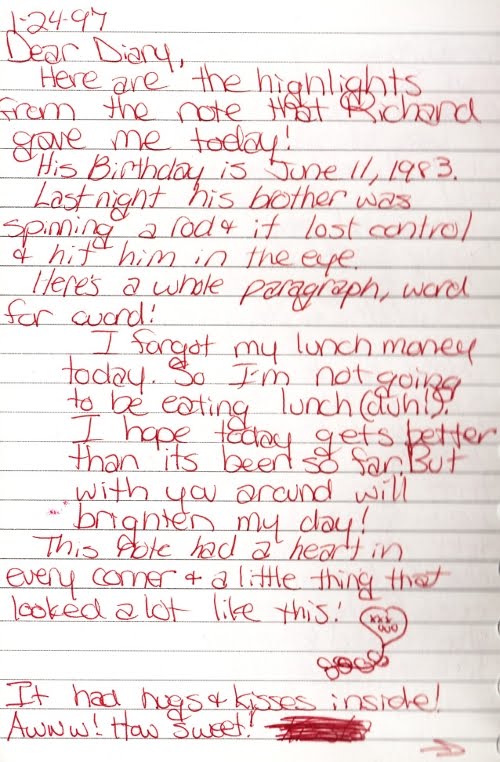 1-24-97
Dear Diary,
Here are the highlights
from the note that Richard
gave me today!
His Birthday is June 11, 1983.
Last night his brother was
spinning a rod & it lost control
& hit him in the eye.
Here's a whole paragraph, word
for word!
I forgot my lunch money
today. So I'm not going
to be eating lunch (duh!).
I hope today gets better
than its been so far. But
with you around will
brighten my day!
This note had a heart in
every corner & a little thing that
looked a lot like this!
xxx
ooo
It had hugs & kisses inside!
Awww! How sweet!